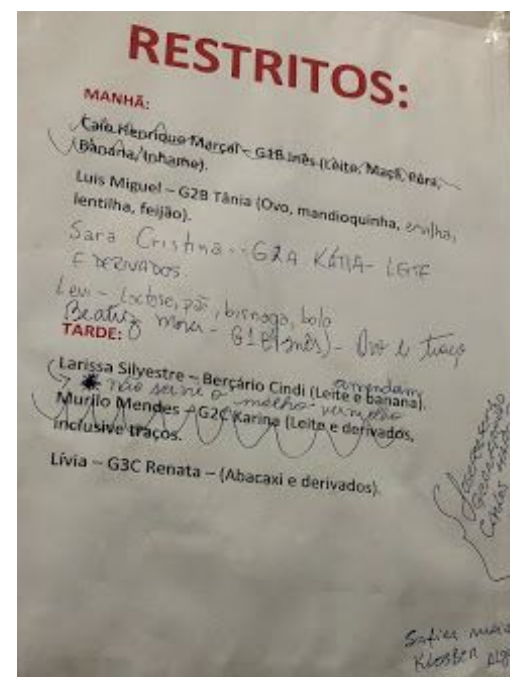 RESTRITOS:
MANHÃ:
Caio Henrique Marçal – G1B Inês (Leite, Maçã, Pêra,
Banana/Inhame).
Luis Miguel – G2B Tânia (Ovo, mandioquinha, ervilha,
lentilha, feijão).
Sara Cristina - G2A KÁTIA - LEITE
E DERIVADOS
Levi - Lactose, pão, bisnaga, bolo
Beatriz - G1B (Inês) - Ovo e traço
TARDE:
amendoim
Larissa Silvestre – Berçário Cindi (Leite e banana).
* não serve o molho vermelho
Murilo Mendes – G2C Karina (Leite e derivados,
inclusive traços.
Lívia – G3C Renata – (Abacaxi e derivados).